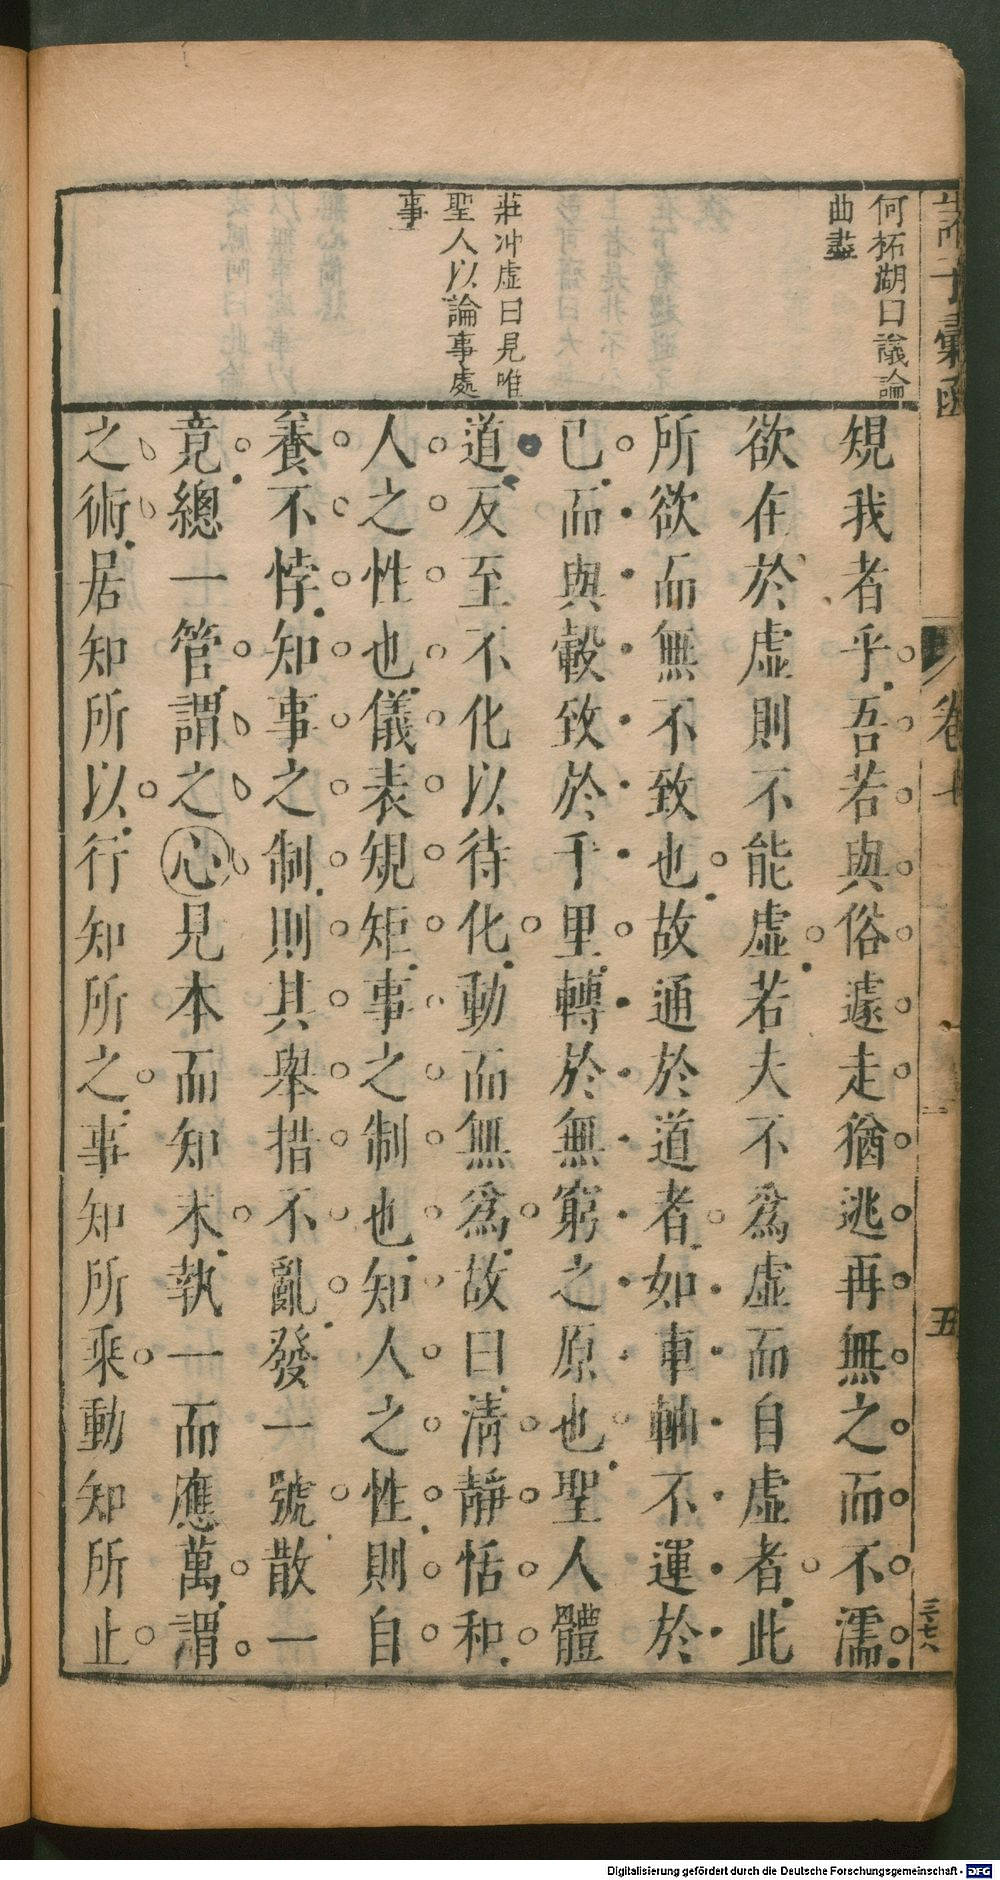 何柘湖曰議論
曲盡
莊冲虛曰見唯
聖人以論事處
事
規我者乎吾若與俗遽走猶逃再無之而不濡
欲在於虛則不能虛若夫不爲虛而自虛者此
所欲而無不致也故通於道者如車軸不運於
已而與轂致於千里轉於無窮之原也聖人體
道反至不化以待化動而無爲故曰清靜恬和
人之性也儀表規矩事之制也知人之性則自
養不悖知事之制則其舉措不亂發一號散一
竟總一管謂之心見本而知末執一而應萬謂
之術居知所以行知所之事知所乘動知所止
諸子彙函
卷十
五
三七八
Digitalisierung gefördert durch die Deutsche Forschungsgemeinschaft - DFG